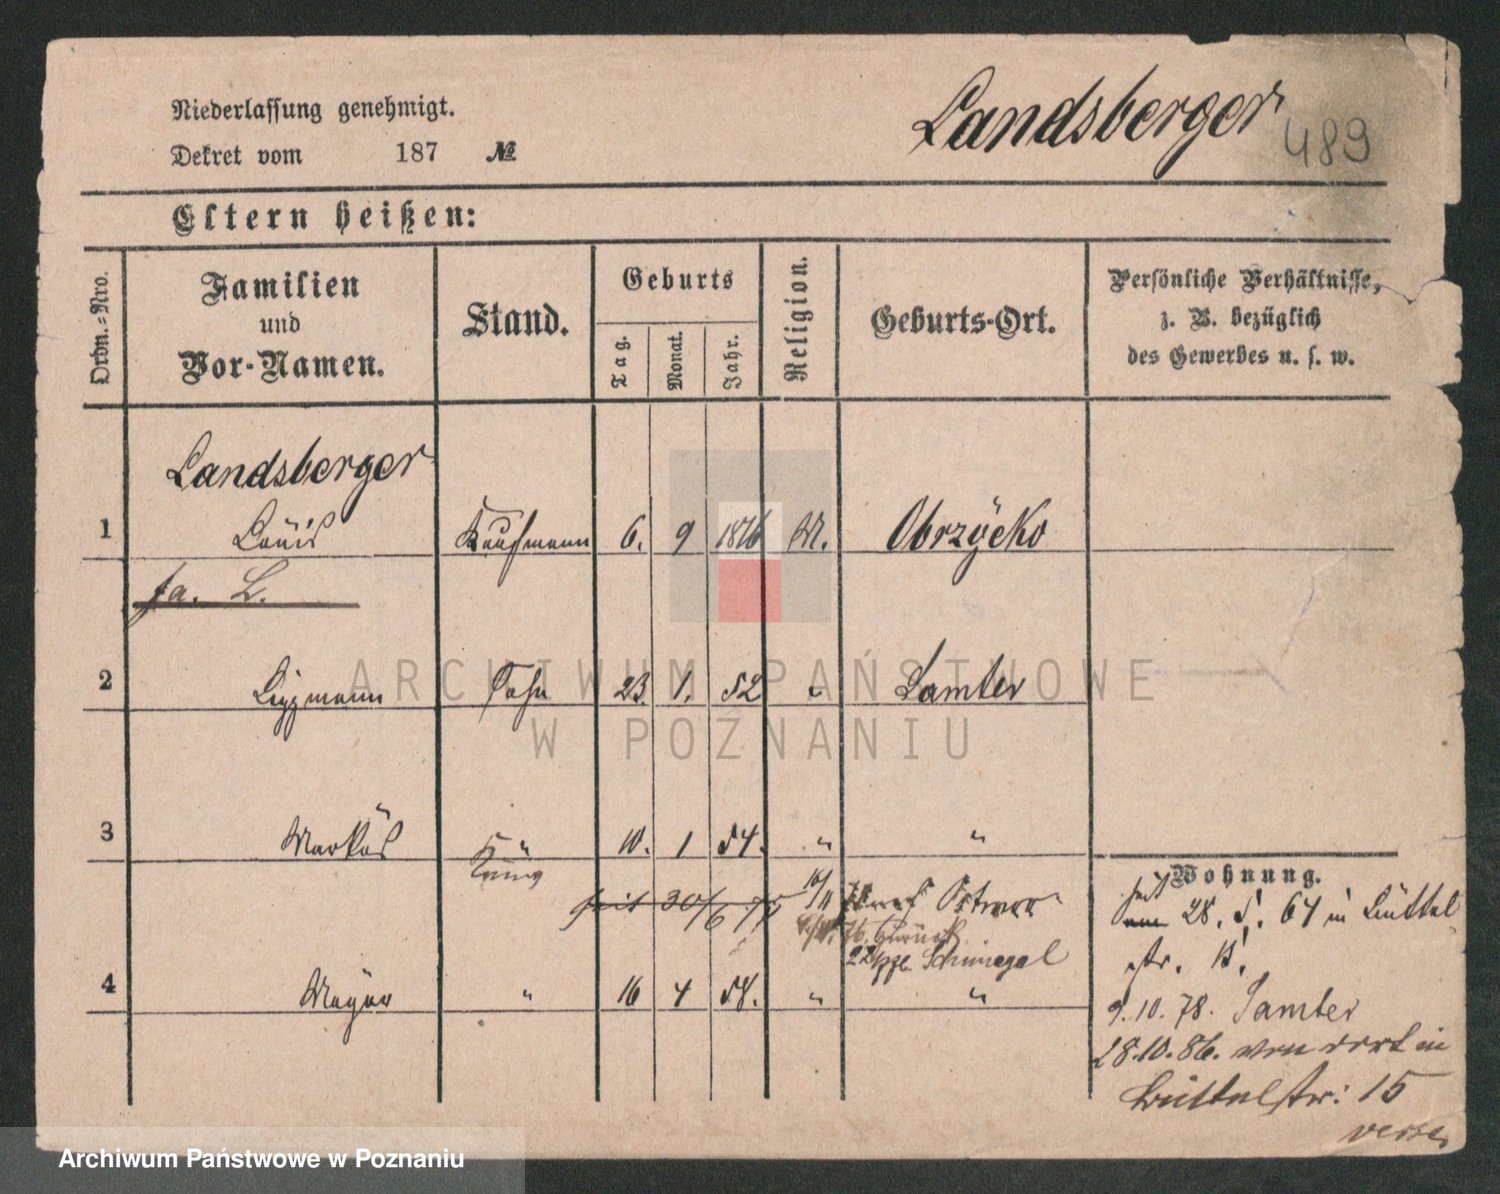 Niederlassung genehmigt.
Dekret vom 187 №
Landsberger
489
Eltern heißen:
Ordn.-Nro.
Familien
und
Vor-Namen.
Stand.
Geburts
Tag.
Monat.
Jahr.
Religion.
Geburts-Ort.
Persönliche Verhältnisse,
z. B. bezüglich
des Gewerbes u. s. w.
Landsberger
1 Louis Kaufmann 6. 9 M. Obrzycko
fa. L.
2 Lippmann Sohn 23. 1. 52 " Samter
3 Markus " 10. 1 54. " "
seit 30/6 75
zurück
Schmiegel
4 Meyer " 16 4 58. " "
Wohnung.
seit
28. 5. 64 in Büttel
str.
9.10.78. Samter
28.10.86. von dort in
Büttelstr: 15
verte
ARCHIWUM PAŃSTWOWE
W POZNANIU
Archiwum Państwowe w Poznaniu